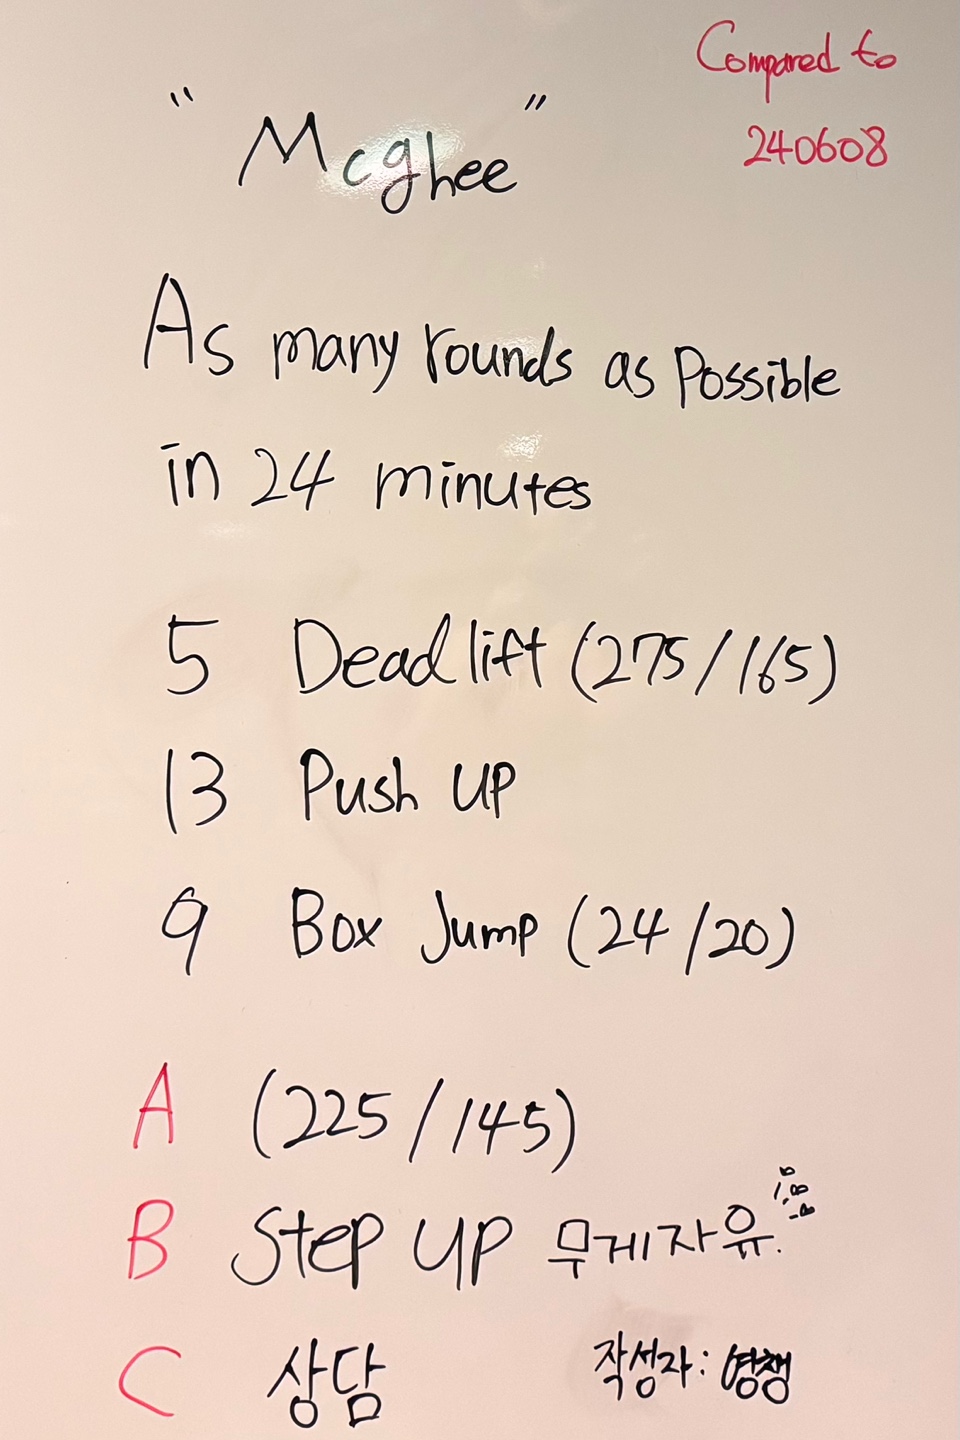 Compared to
240608
"Mcghee"
As many rounds as Possible
in 24 minutes
5 Deadlift (275/165)
13 Push UP
9 Box Jump (24/20)
A (225/145)
B Step UP 무게자유.
C 상담
작성자: 영쟁